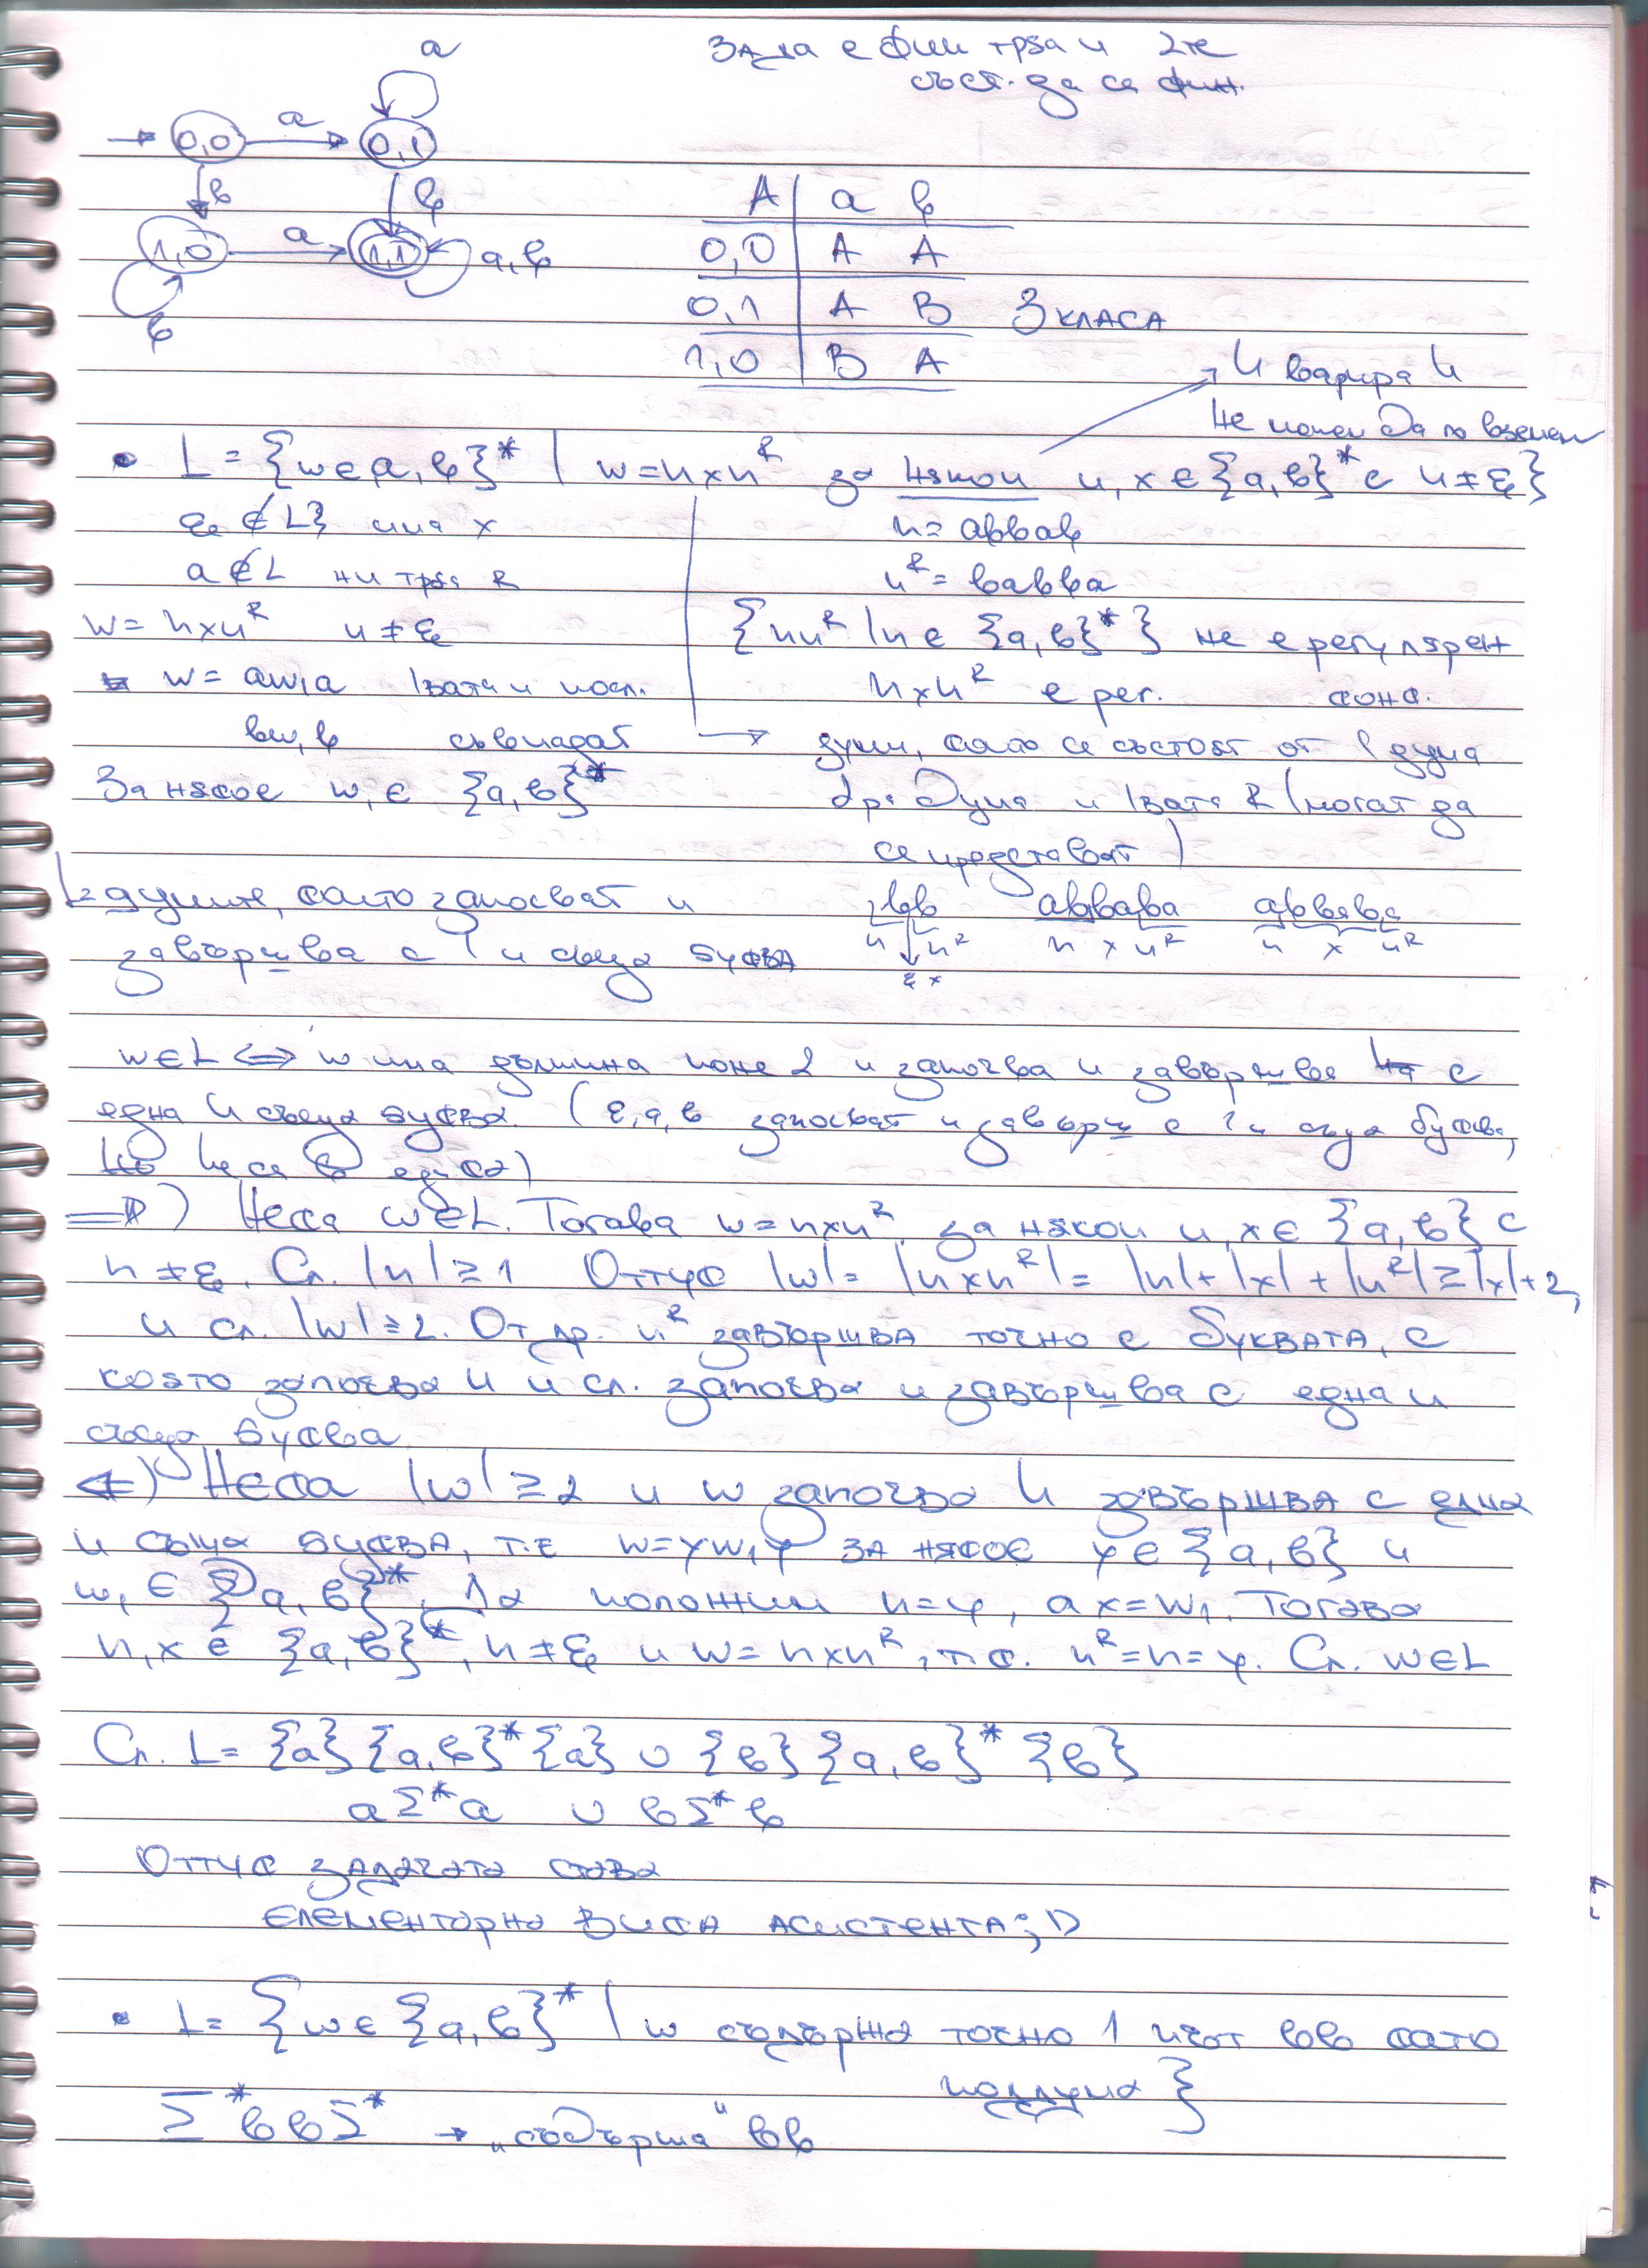 За да е фин трба и 2те
със�. да са фин.
a
→ 0,0 a 0,1
b b
1,0 a 1,1 a,b
b
A | a b
0,0 | A A
0,1 | A B 3 класа
1,0 | B A
u варира и
не можем да го вземем
• L = {w∈a,b}* | w=uxu^R за някои u,x∈{a,b}* с u≠ε}
ε∉L} има x
a∉L ни трба R
w=uxu^R u≠ε
w= aw₁a 1вата и посл.
bw₁b съвпадат
За някое w₁∈ {a,b}*
u= abbab
u^R= babba
{uu^R | u∈ {a,b}*} не е регулярен
uxu^R е рег.
→ думи, които се състоят от 1 дума
друга дума и 1вата R (могат да
се представят)
L= думите, които започват и
завършва с 1 и съща буква
bb abbabba abbabba
u u^R u x u^R u x u^R
ε x
w∈L ⇔ w има дължина поне 2 и започва и завършва с
една и съща буква. (ε,a,b започват и заворш с 1 и съща буква,
но не са в езика)
⇒) Нека w∈L. Тогава w=uxu^R за някои u,x∈ {a,b} с
u≠ε. Сл. |u|≥1 Оттук |w|= |uxu^R|= |u|+|x|+|u^R|≥|x|+2,
и сл. |w|≥2. От др. u^R завършва точно с буквата, с
която започва u и сл. започва и завършва с една и
съща буква
⇐) Нека |w|≥2 и w започва и завършва с една
и съща буква, т.е w=yw₁y за някое y∈{a,b} и
w₁∈{a,b}*. Да положим u=y, a x=w₁. Тогава
u,x∈ {a,b}*, u≠ε и w=uxu^R, т.к. u^R=u=y. Сл. w∈L
Сл. L= {a}{a,b}*{a} ∪ {b}{a,b}*{b}
aΣ*a ∪ bΣ*b
Оттук задачата става
елементарна вика асистента ;D
• L= {w∈{a,b}* | w съдържа точно 1 път bb като
поддума}
Σ*bbΣ* → „съдържа" bb